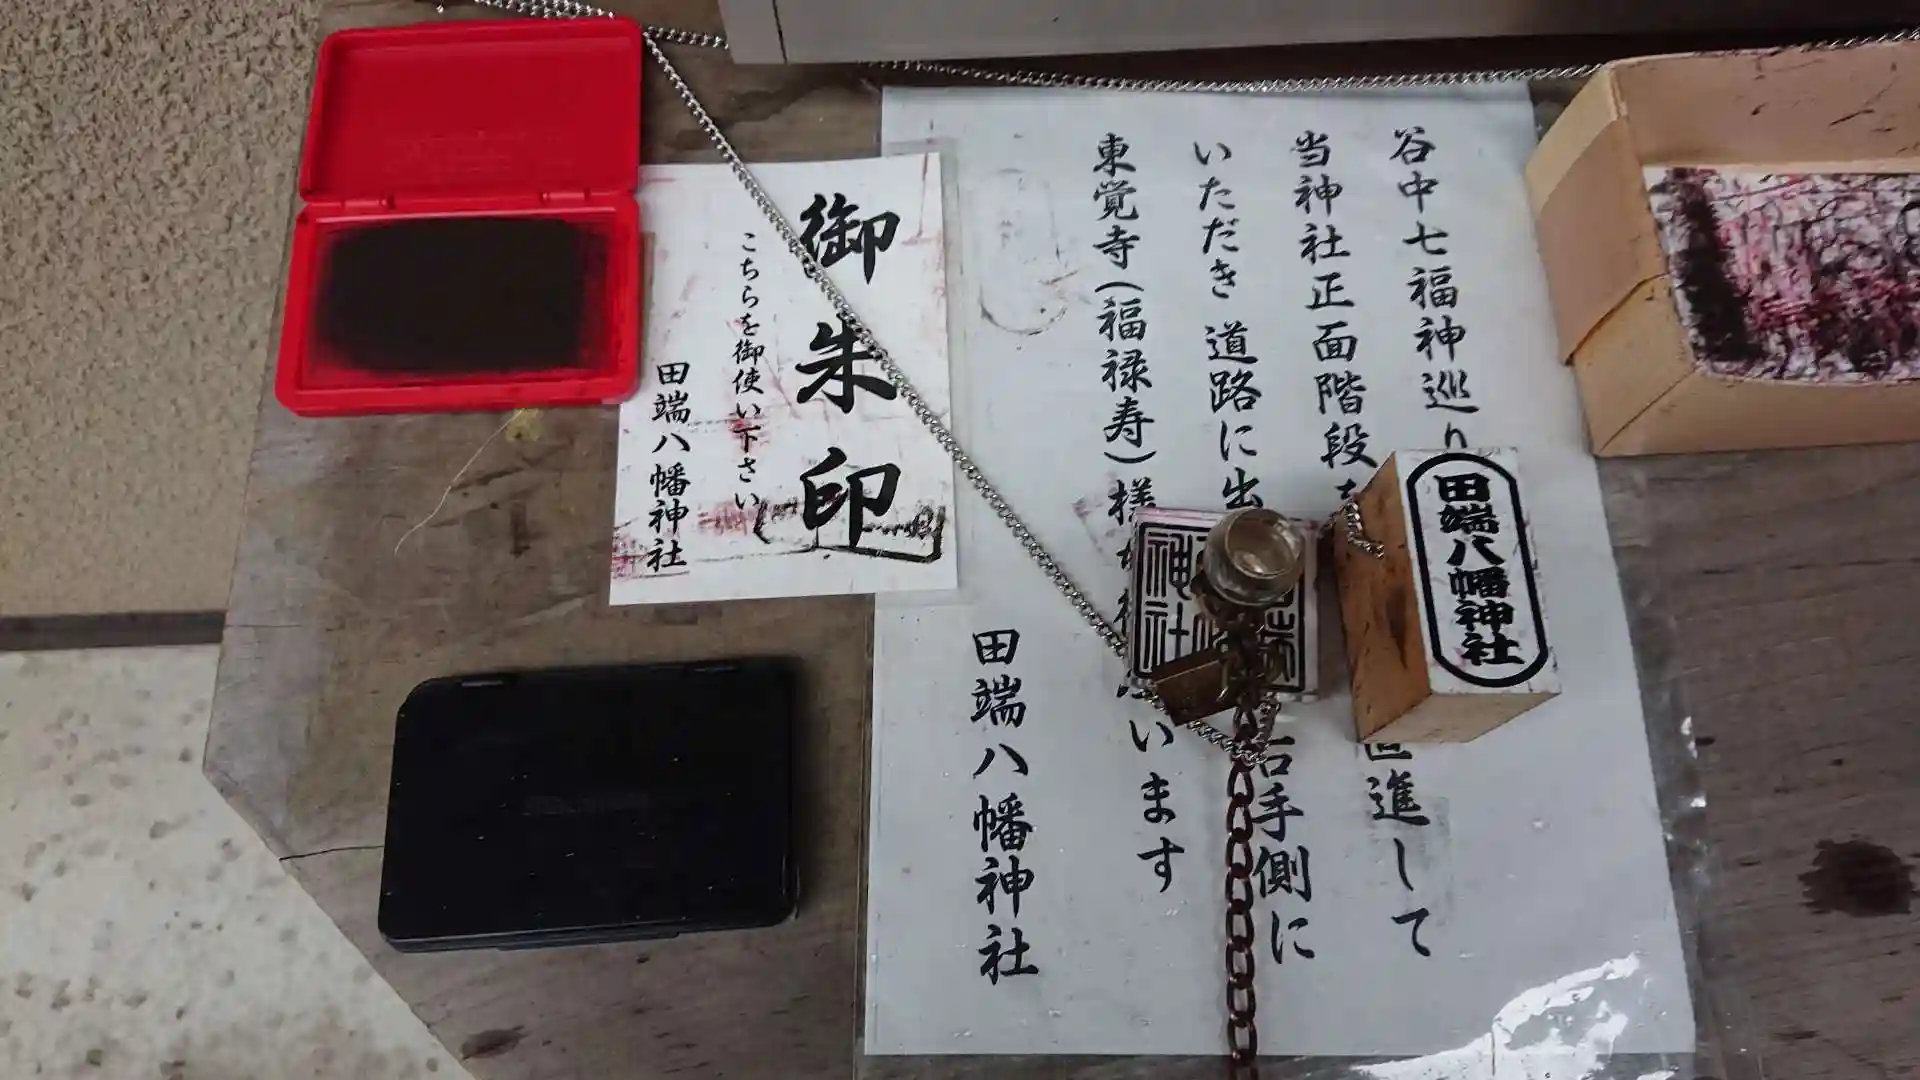 谷中七福神巡り
当神社正面階段を直進して
いただき道路に出 右手側に
東覚寺(福禄寿)様 います
田端八幡神社
御朱印
こちらを御使い下さい
田端八幡神社
田端八幡神社
神社